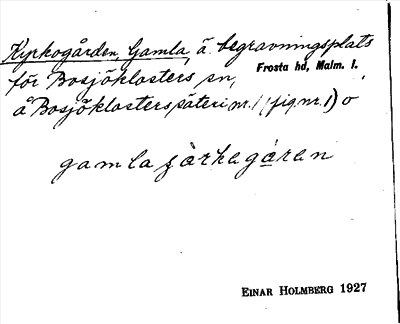 Kyrkogården, Gamla, å begravningsplats
för Bosjöklosters sn,
Frosta hd, Malm. l.
å Bosjöklosters säteri nr. 1 (fig. nr. 1) o
gamla ҫàrkagáran
EINAR HOLMBERG 1927